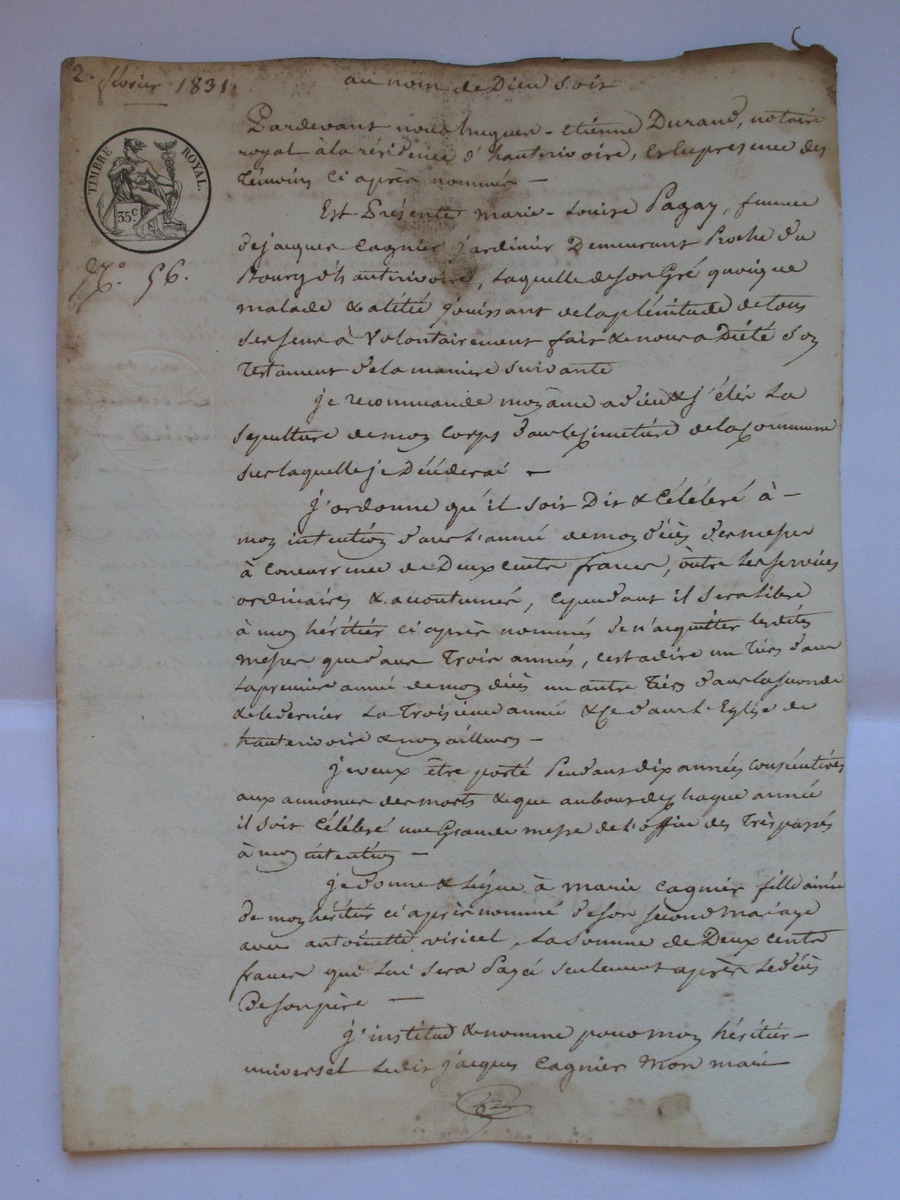 2. février 1831.
au nom de Dieu soit
TIMBRE ROYAL.
35c
N.° 56.
Pardevant nous hugues-etienne Durand, notaire
royal à la résidence d'hauterivoire, & en presence des
témoins ci après nommés —
Est Présente marie-Louise Pagay, femme
de jacques Cagnier jardinier Demeurant Proche du
Bourg d'hauterivoire, Laquelle de son Gré quoique
malade & alitée jouissant de la plénitude de tous
ses sens à Volontairement fait & nous a Dicté son
Testament de la maniere suivante
je recommande mon âme a dieu & j'élis La
sepulture de mon Corps dans le cimetière de la Commune
sur laquelle je Décéderai —
J'ordonne qu'il soit Dit & Célébré à —
mon intention dans L'année de mon décès des messes
à Concurrence de Deux cents francs, outre les services
ordinaires & accoutumés, cependant il sera libre
à mon héritier ci après nommés de n'acquitter lesdites
messes que dans Trois années, c'est a dire un Tiers dans
La premiere année de mon décès un autre Tiers dans la seconde
& le dernier La Troisieme année & Ce dans L'Eglise de
hauterivoire & non ailleurs —
je veux être porté Pendant dix années consécutives
aux annonces des morts & que au bout de chaque année
il soit Célébré une Grande messe de L'office des Trépassés
à mon intention —
je donne & Légue à marie Cagnier fille ainée
de mon héritier ci après nommé de son second mariage
avec antoinette La Somme de Deux cents
francs qui Lui sera Payée seulement après Le décès
De son père —
j'institue & nomme pour mon héritier —
universel Ledit jacques Cagnier Mon mari